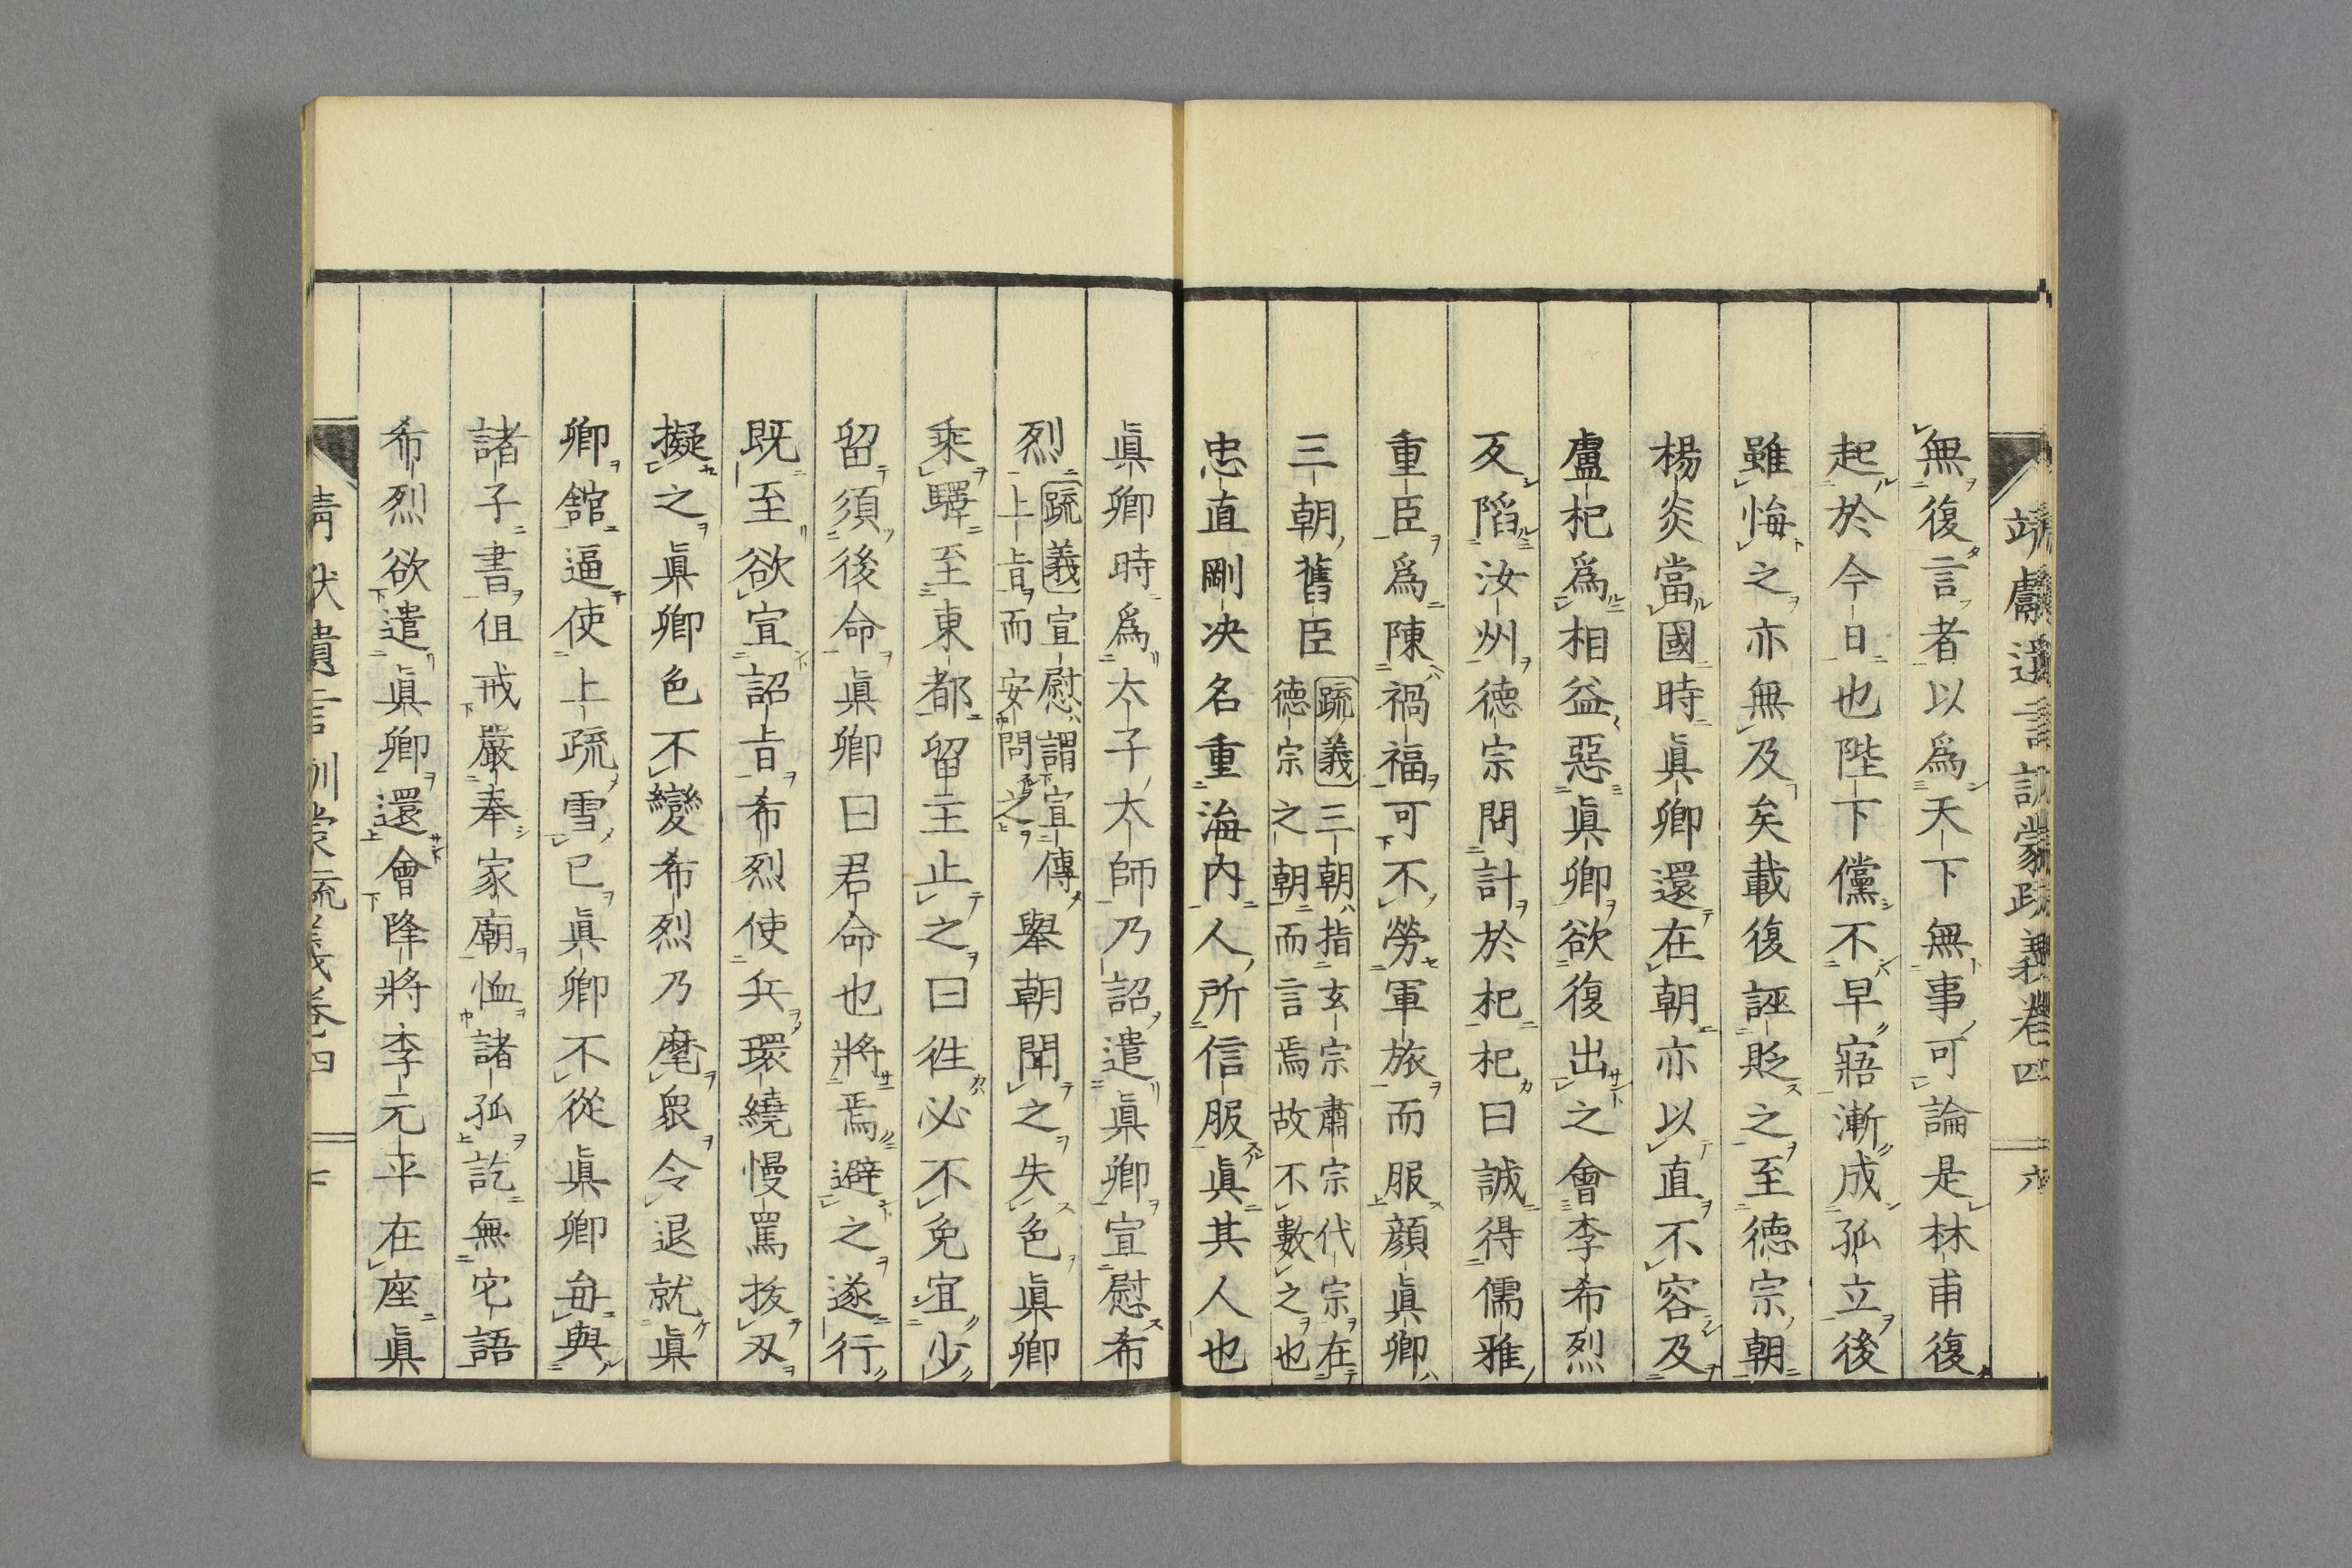 靖獻遺言訓蒙疏義卷四
六
無復言者以爲天下無事可論是林甫復
起於今日也陛下儻不早寤漸成孤立後
雖悔之亦無及矣載復誣貶之至德宗朝
楊炎當國時眞卿還在朝亦以直不容及
盧杞爲相益惡眞卿欲復出之會李希烈
反陷汝州德宗問計於杞杞曰誠得儒雅
重臣爲陳禍福可不勞軍旅而服顏眞卿
三朝舊臣
疏義三朝指玄宗肅宗代宗在
德宗之朝而言焉故不數之也
忠直剛決名重海内人所信服眞其人也
眞卿時爲太子太師乃詔遣眞卿宣慰希
烈
疏義宣慰謂宣傳
上旨而安問之
舉朝聞之失色眞卿
乘驛至東都留主止之曰往必不免宜少
留須後命眞卿曰君命也將焉避之遂行
既至欲宣詔旨希烈使兵環繞慢罵拔刃
擬之眞卿色不變希烈乃麾衆令退就眞
卿館逼使上疏雪已眞卿不從眞卿毎與
諸子書但戒嚴奉家廟恤諸孤訖無它語
希烈欲遣眞卿還會降將李元平在座眞
靖献遺言訓蒙疏義卷四
七